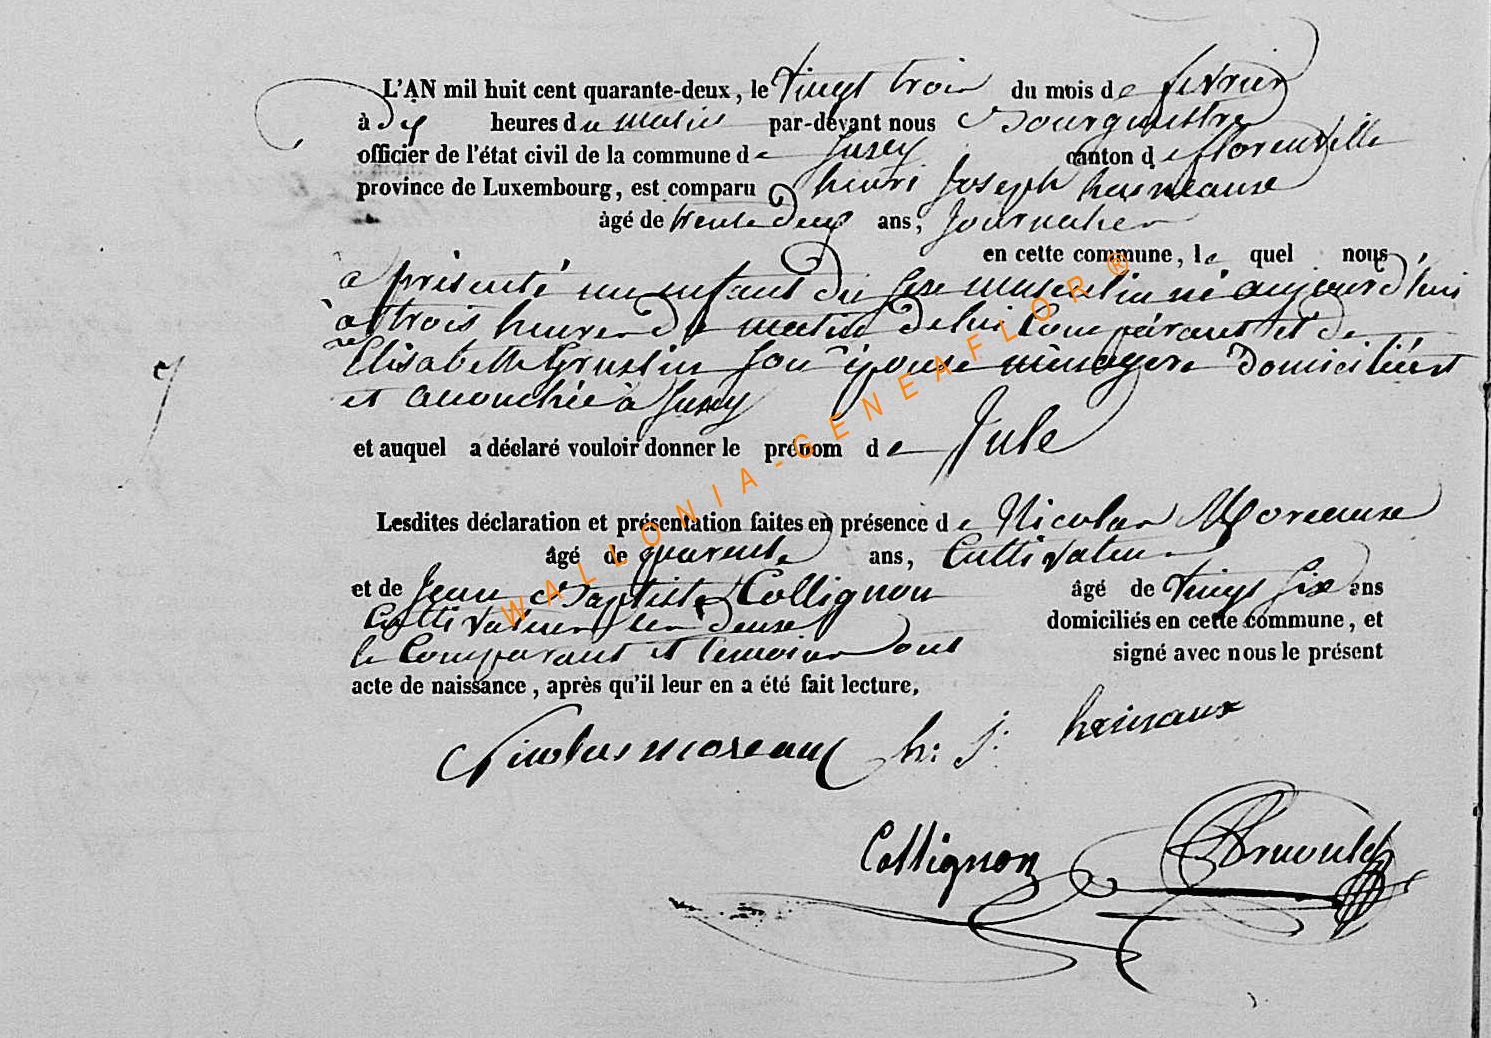 L'AN mil huit cent quarante-deux, le vingt trois du mois de fevrier
à dix heures du matin par-devant nous Bourgmestre
officier de l'état civil de la commune de Jusey canton de florenville
province de Luxembourg, est comparu henri Joseph haineaux
âgé de trente deux ans, Journalier
en cette commune, le quel nous
a présenté un enfant du sexe masculin né aujourd'hui
à trois heures du matin de lui Comparant et de
Elisabeth son épouse ménagere domiciliées
et accouchée à Jusey
et auquel a déclaré vouloir donner le prénom de Jule
Lesdites déclaration et présentation faites en présence de Nicolas Moreaux
âgé de quarente ans, Cultivateur
et de Jean Baptiste Collignon âgé de vingt six ans
Cultivateur les deux domiciliés en cette commune, et
le Comparant et temoins ont signé avec nous le présent
acte de naissance, après qu'il leur en a été fait lecture.
Nicolas moreaux h: j: hainaux
Collignon
WALLONIA-GENEAFLOR ®